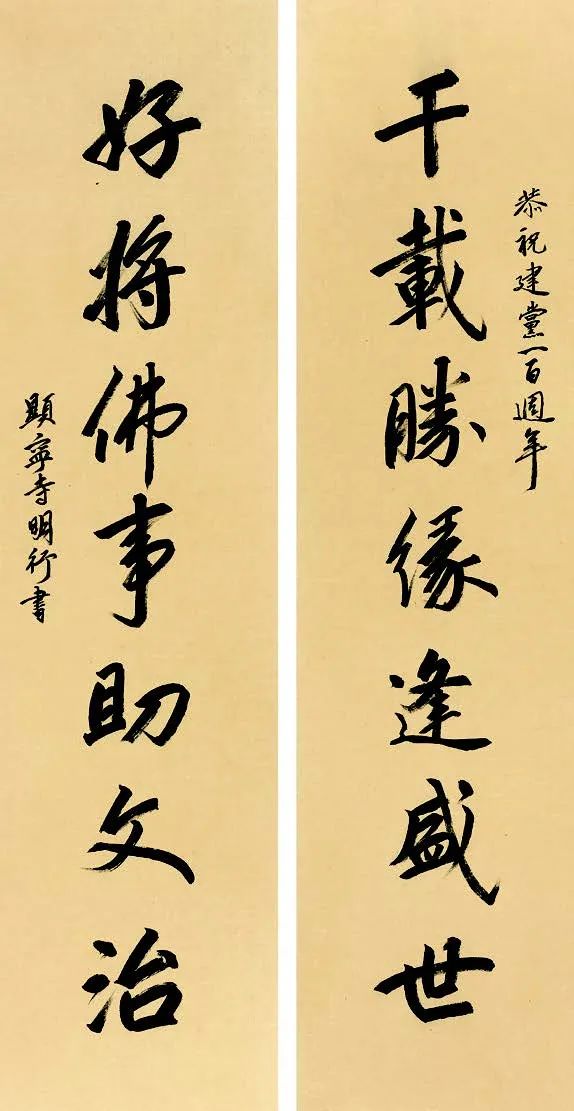 恭祝建黨一百週年
千載勝緣逢盛世
好將佛事助文治
顯寧寺明行書